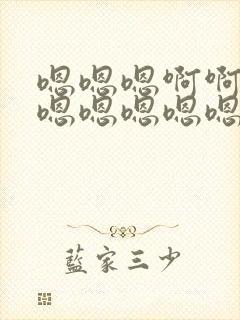 嗯嗯嗯啊啊
嗯嗯嗯嗯嗯
藍家三少